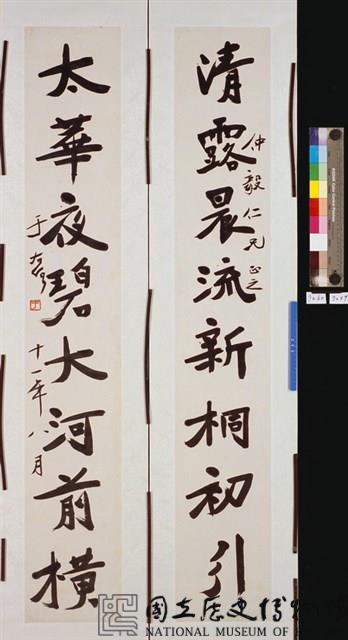 清露晨流新桐初引
仲毅仁兄正之
太華夜碧大河前橫
于右任
十一年八月
國立歷史博物館
NATIONAL MUSEUM OF